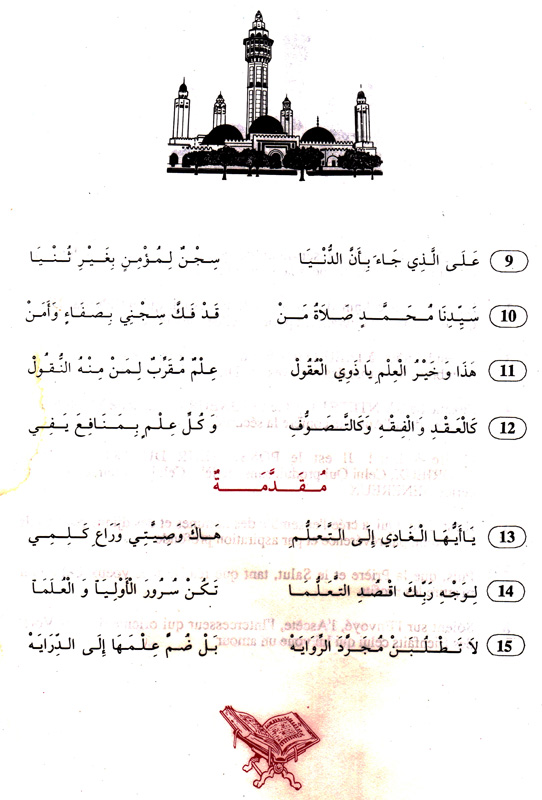 9 عَلَى الَّذِي جَاءَ بِأَنَّ الدُّنْيَا سِجْنٌ لِمُؤْمِنٍ بِغَيْرِ ثُنْيَا
10 سَيِّدِنَا مُحَمَّدٍ صَلاَةُ مَنْ قَدْ فَكَّ سِجْنِي بِصَفَاءٍ وَأَمَنْ
11 هَذَا وَخَيْرُ الْعِلْمِ يَا ذَوِي الْعُقُولْ عِلْمٌ مُقَرِّبٌ لِمَنْ مِنْهُ النُّقُولْ
12 كَالْعَقْدِ وَالْفِقْهِ وَكَالتَّصَوُّفِ وَكُلِّ عِلْمٍ بِمَنَافِعَ يَفِي
مُقَدَّمَةٌ
13 يَاأَيُّهَا الْغَادِي إِلَى التَّعَلُّمِ هَاكَ وَصِيَّتِي وَرَاعِ كَلِمِي
14 لِوَجْهِ رَبِّكَ اقْصُدِ التَّعَلُّمَا تَكُنْ سُرُورَ الْأَوْلِيَا وَالْعُلَمَا
15 لاَ تَطْلُبَنْ مُجَرَّدَ الرِّوَايَهْ بَلْ ضُمَّ عِلْمَهَا إِلَى الدِّرَايَهْ